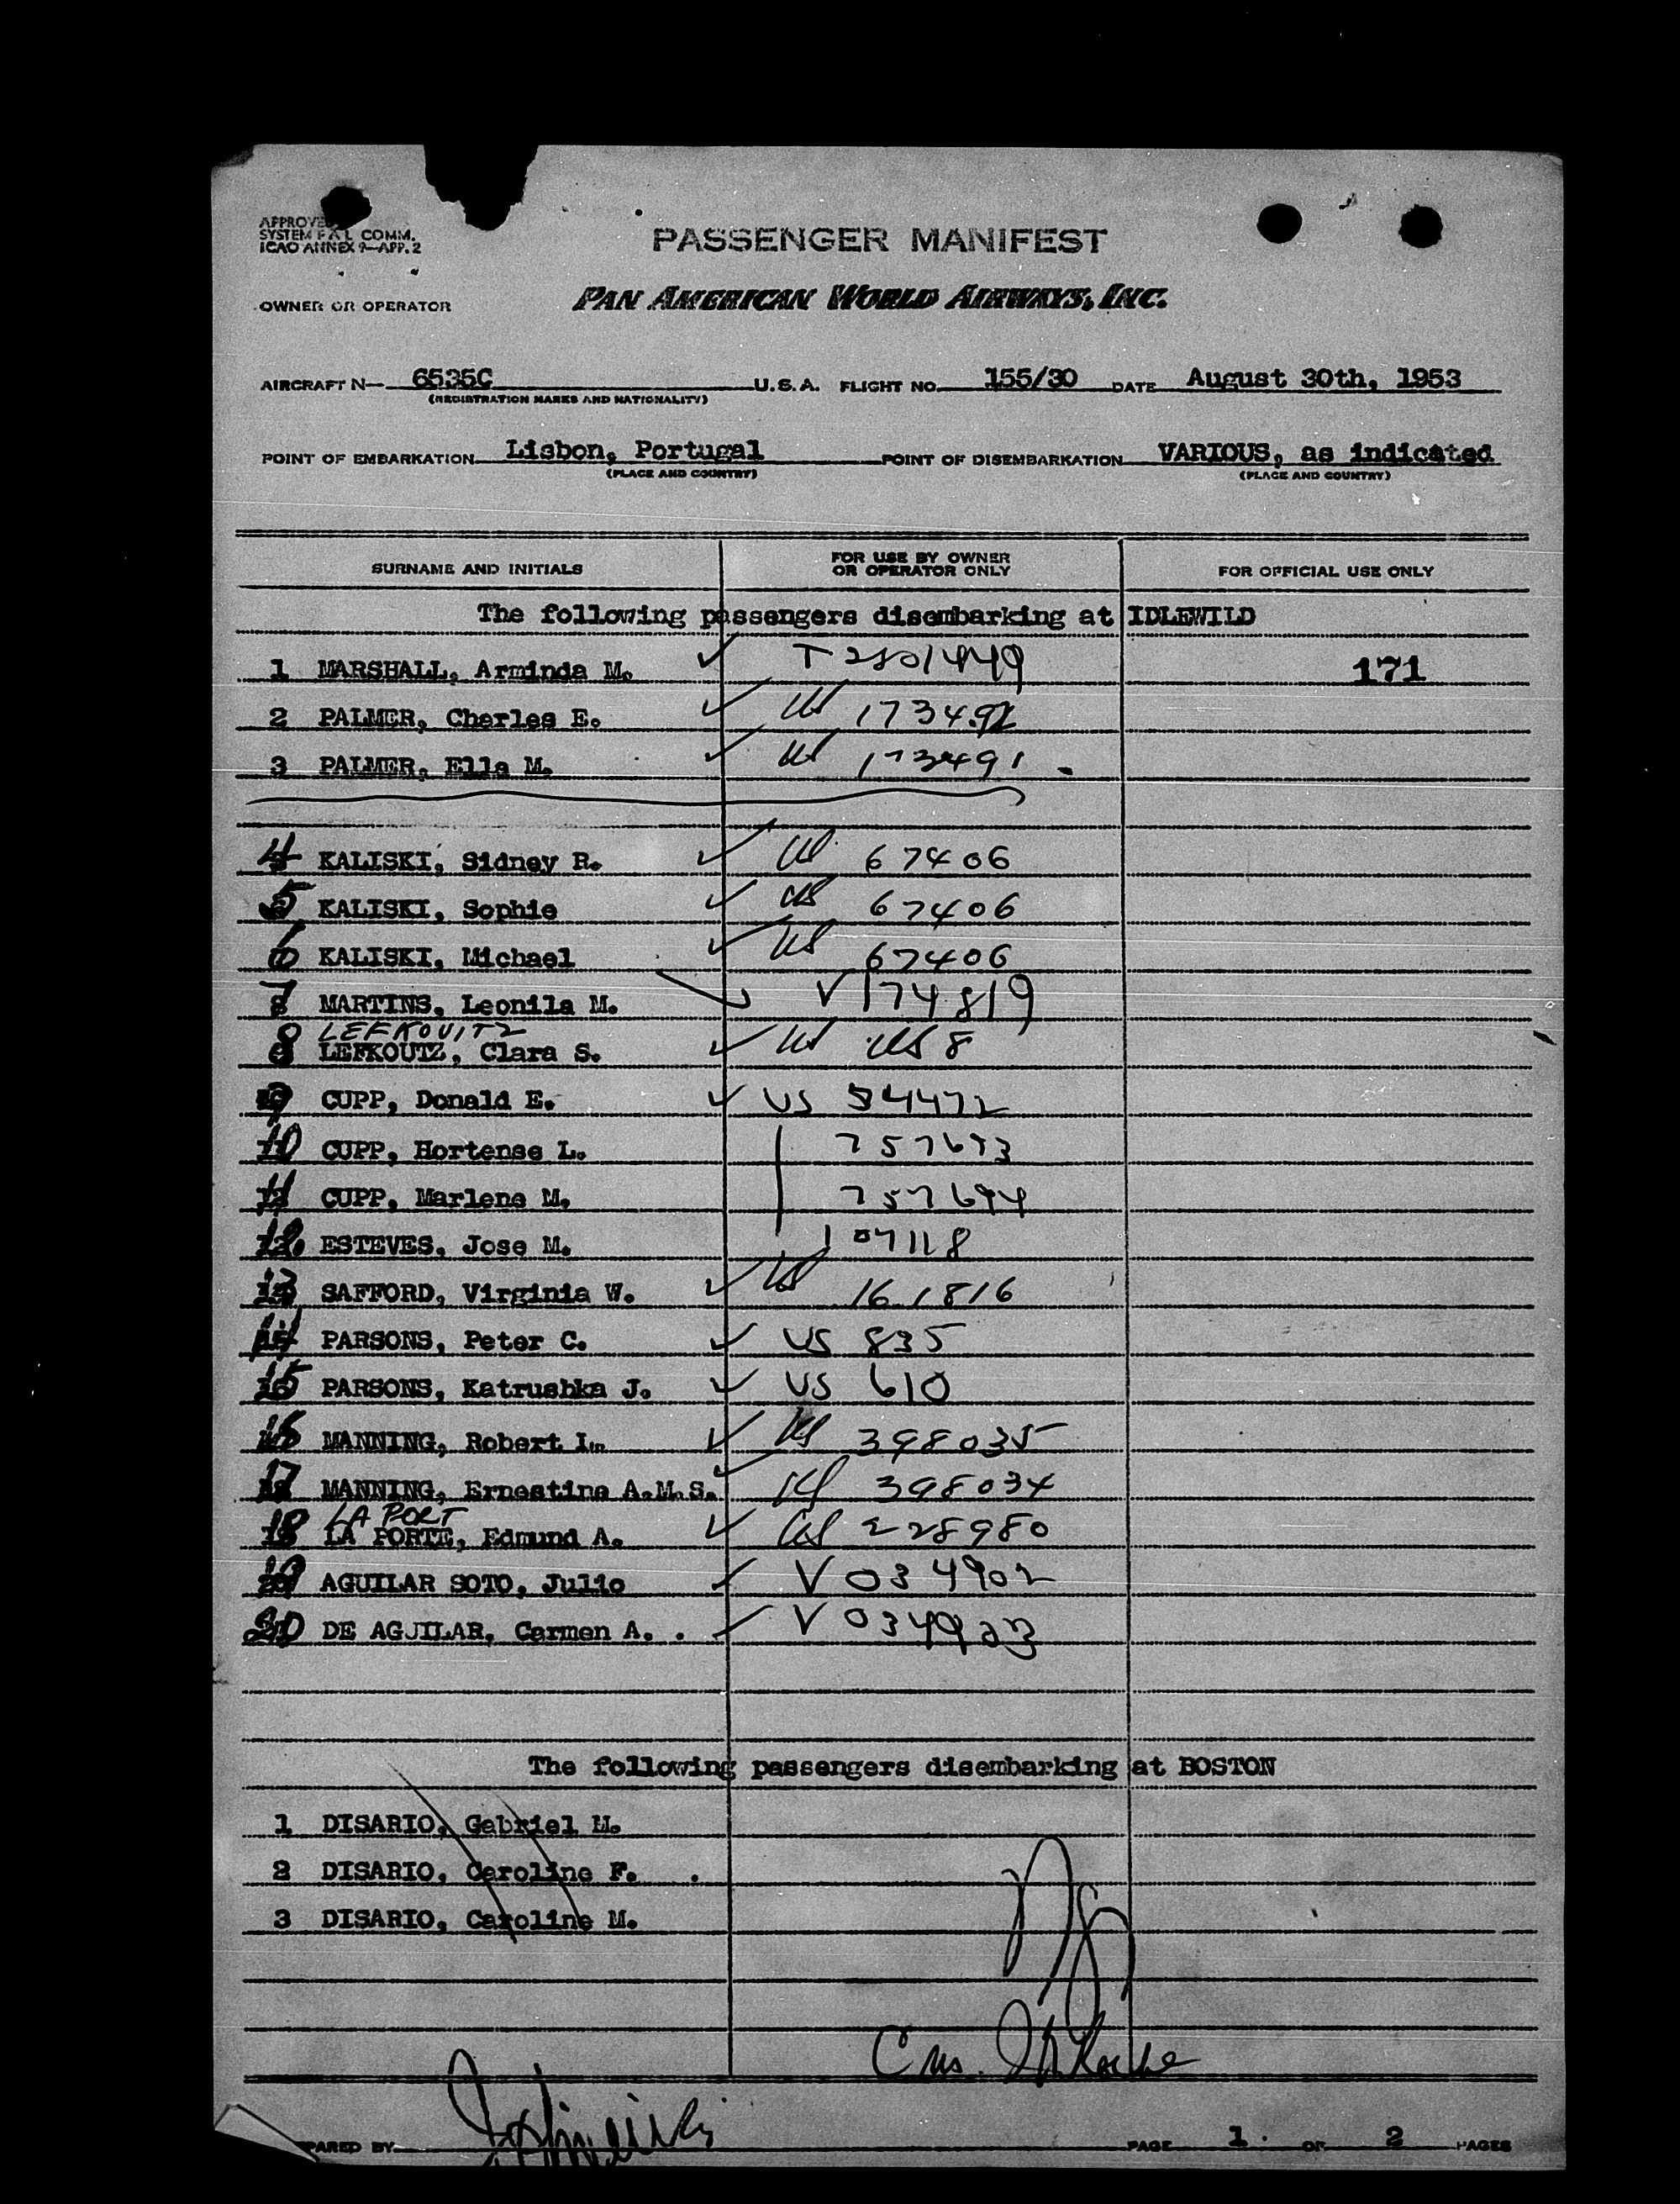 APPROVED
SYSTEM F A L COMM.
ICAO ANNEX 9—APP. 2
PASSENGER MANIFEST
OWNER OR OPERATOR PAN AMERICAN WORLD AIRWAYS, INC.
AIRCRAFT N— 6535C U.S.A. FLIGHT NO. 155/30 DATE August 30th, 1953
(REGISTRATION MARKS AND NATIONALITY)
POINT OF EMBARKATION Lisbon, Portugal POINT OF DISEMBARKATION VARIOUS, as indicated
(PLACE AND COUNTRY) (PLACE AND COUNTRY)
SURNAME AND INITIALS FOR USE BY OWNER OR OPERATOR ONLY FOR OFFICIAL USE ONLY
The following passengers disembarking at IDLEWILD
1 MARSHALL, Arminda M. T 2801449 171
2 PALMER, Charles E. US 173492
3 PALMER, Ella M. US 173491
4 KALISKI, Sidney R. US 67406
5 KALISKI, Sophie US 67406
6 KALISKI, Michael US 67406
7 MARTINS, Leonila M. V 174819
LEFKOVITZ
8 LEFKOUTZ, Clara S. US US 8
9 CUPP, Donald E. US 54472
10 CUPP, Hortense L. 757693
11 CUPP, Marlene M. 757694
12 ESTEVES, Jose M. 107118
13 SAFFORD, Virginia W. US 161816
14 PARSONS, Peter C. US 835
15 PARSONS, Katrushka J. US 610
16 MANNING, Robert L. US 398035
17 MANNING, Ernestine A.M.S. US 398034
LA PORT
18 LA PORTE, Edmund A. US 228980
19 AGUILAR SOTO, Julio V 034902
20 DE AGUILAR, Carmen A. V 034923
The following passengers disembarking at BOSTON
1 DISARIO, Gabriel M.
2 DISARIO, Caroline F.
3 DISARIO, Caroline M.
PARED BY PAGE 1 OF 2 PAGES